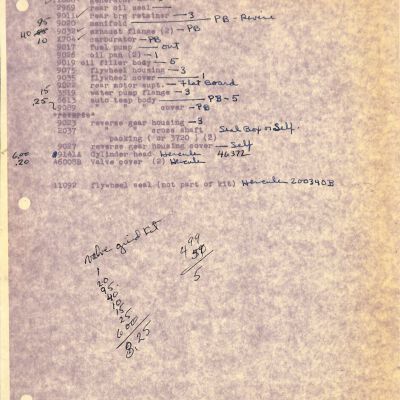 2969 rear oil seal —
9011 rear brg retainer — 3
.95 9020 manifold — PB - Reverse
40 9032 exhaust flange (2) — PB
10 carburator — PB
9017 fuel pump — out
9018 oil pan (2) — 1
9019 oil filler body — 5
9075 flywheel housing — 3
9035 flywheel cover — 1
9202 rear motor supt. — Flat Board
15 3519 water pump flange — 3
.25 6615 auto temp body — PB - 5
9089 cover — PB
reverse*
9023 reverse gear housing — 3
2037 cross shaft Seal Box or Self.
packing ( or 3720 ) (2)
9027 reverse gear housing cover — Self
6.00 9141A Cylinder head Hercules 46372
.20 A6005B Valve cover (2) Hercules
11092 flywheel seal (not part of kit) Hercules 200340B
valve grind kit
499
59
5
1
20
95.
40
10
15
25
6 00
8.25